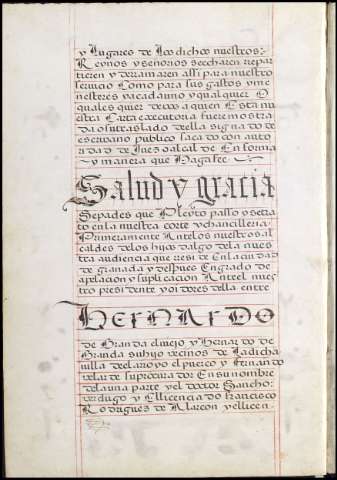 y lugares de los dichos nuestros:
Reynos y señorios se echaren repar
tieren y derramaren assi para nuestro
seruicio como para sus gastos y me
nesteres y a cada uno y qual quier o
quales quier de uos a quien esta nu
estra carta executoria fuere mostra
da o su traslado della signado de
escriuano publico sacado con auto
ridad de juez o alcalde en forma
y manera que haga fee
Salud y gracia
Sepades que pleyto passo y se tra
to en la nuestra corte y chancilleria:
Primeramente ante los nuestros al
caldes de los hijos dalgo de la nues
tra audiencia que reside en la ciudad
de granada y despues en grado de
apelacion y suplicacion ante el nues
tro presidente y oidores della entre
Hernardo
de Granda el viejo y Hernardo de
Granda su hijo vecinos de la dicha
villa del arroyo el puerco y Fernando
velar de su procurador en su nombre
de la una parte y el doctor Sancho:
verdugo y el licenciado francisco
Rodrigues de Alarcon y el licen